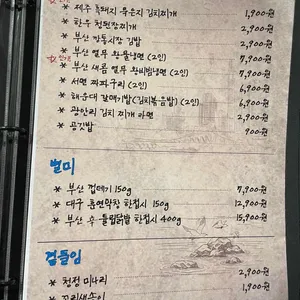 * 제주 흑돼지 묵은지 김치찌개 1,900원
* 한우 청된장찌개 2,900원
* 부산 깡통시장 김밥 2,900원
* 부산 열무 왕물냉면 (2인) 7,900원
* 부산 새콤 열무 왕비빔냉면 (2인) 7,900원
* 서면 짜파구리 (2인) 6,900원
* 해운대 갈매기밥(김치볶음밥) (2인) 6,900원
* 광안리 김치 찌개 라면 2,900원
* 공깃밥 900원
별미
* 부산 껍데기 150g 7,900원
* 대구 훈연막창 한접시 150g 12,900원
* 부산 수 튤립닭발 한접시 400g 15,900원
곁들임
* 청정 미나리 2,900원
* 꼬리새송이 1,900원